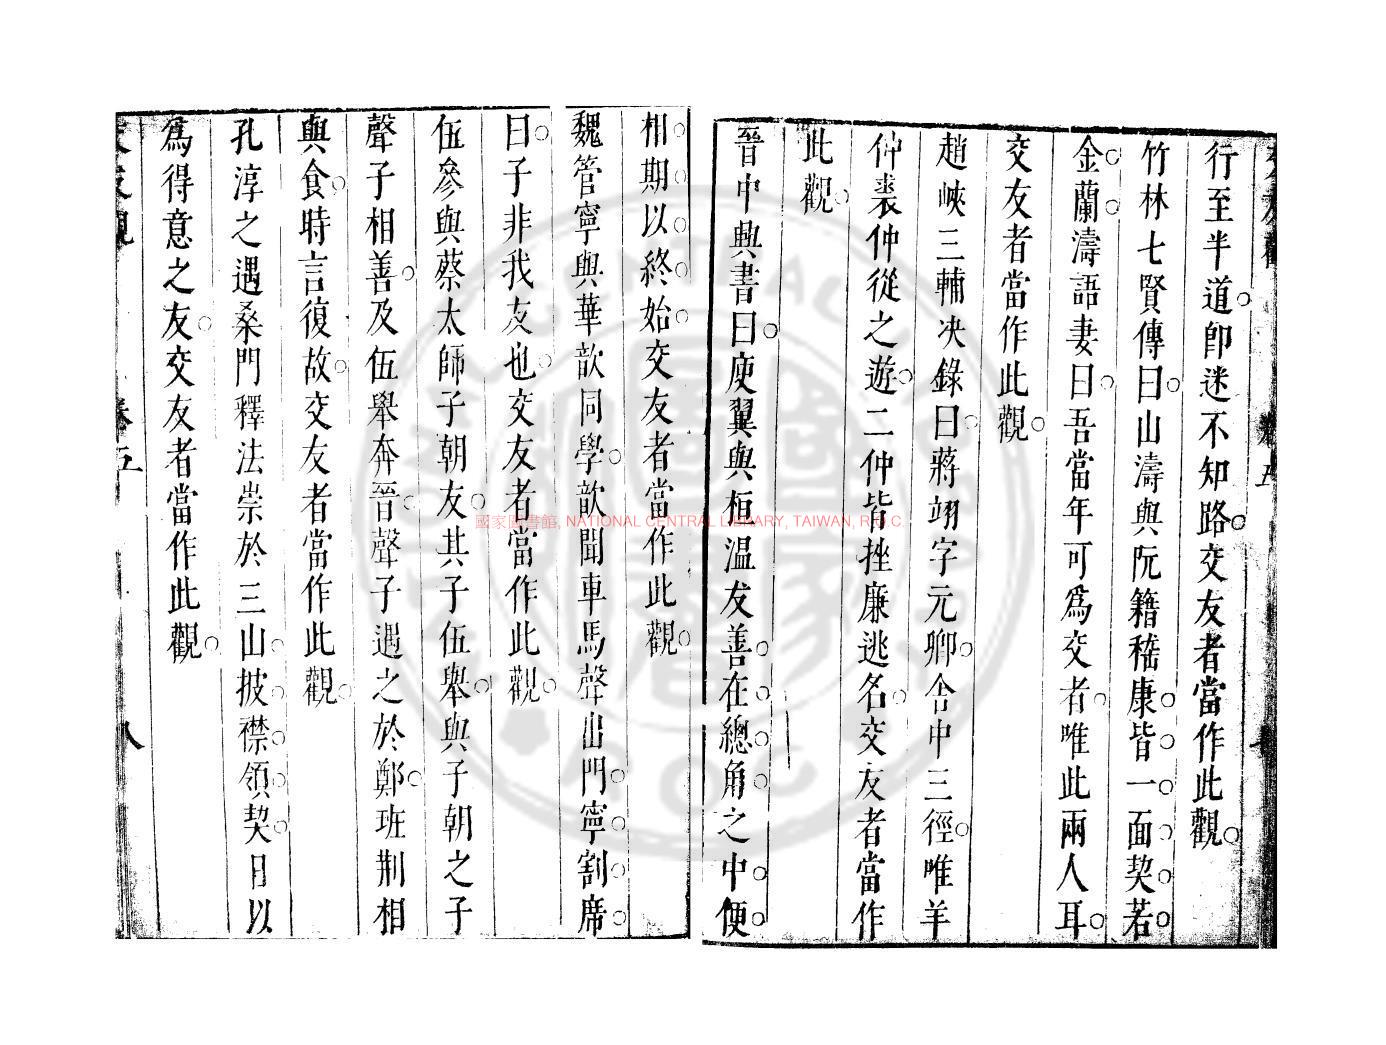 行至半道即迷不知路交友者當作此觀
竹林七賢傳曰山濤與阮籍嵇康皆一面契若
金蘭濤語妻曰吾當年可爲交者唯此兩人耳
交友者當作此觀
趙峽三輔决錄曰蔣翊字元卿舍中三徑唯羊
仲裘仲從之遊二仲皆挫廉逃名交友者當作
此觀
晉中興書曰庾翼與桓温友善在總角之中便
相期以終始交友者當作此觀
魏管寧與華歆同學歆聞車馬聲出門寧割席
曰子非我友也交友者當作此觀
伍參與蔡太師子朝友其子伍舉與子朝之子
聲子相善及伍舉奔晉聲子遇之於鄭班荆相
與食時言復故交友者當作此觀
孔淳之遇桑門釋法崇於三山披襟領契日以
爲得意之友交友者當作此觀
交友觀
卷五
八
國家圖書館, NATIONAL CENTRAL LIBRARY, TAIWAN, R.O.C.